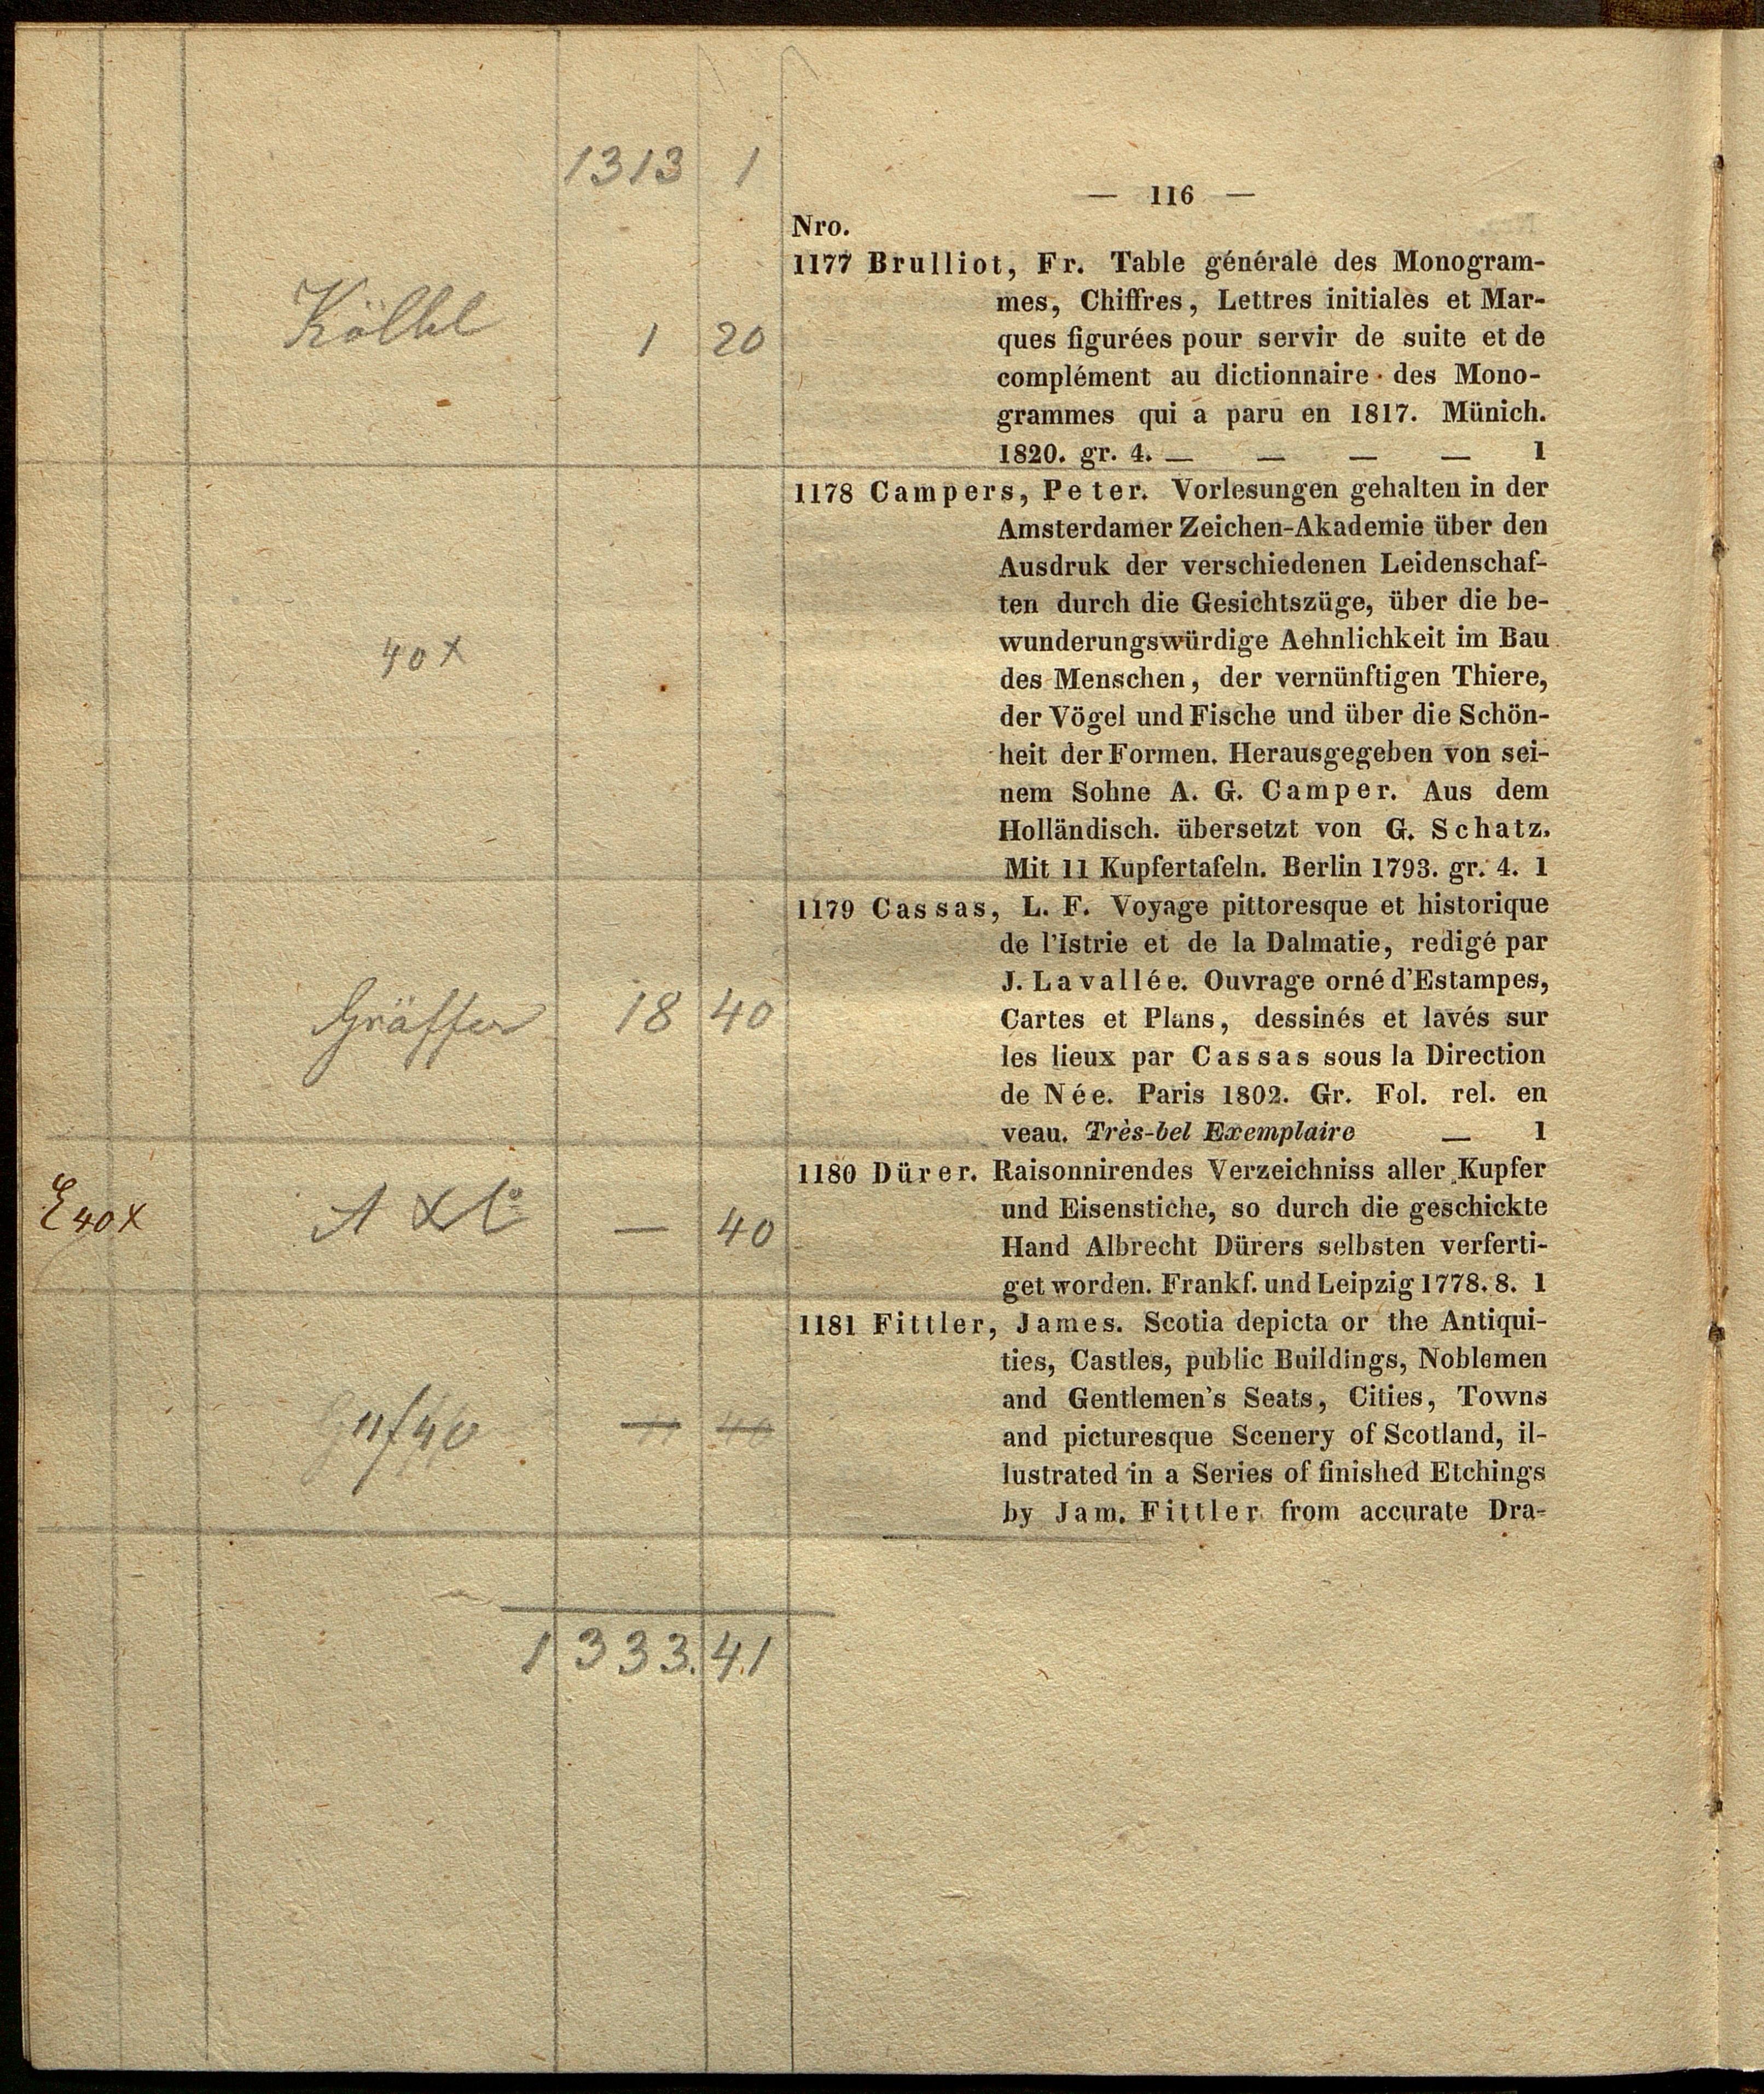 1313 1
— 116 —
Nro.
1177 Brulliot, Fr. Table générale des Monogram-
mes, Chiffres, Lettres initiales et Mar-
ques figurées pour servir de suite et de
complément au dictionnaire des Mono-
grammes qui a paru en 1817. Münich.
1820. gr. 4. — — — — 1
1 20
1178 Campers, Peter. Vorlesungen gehalten in der
Amsterdamer Zeichen-Akademie über den
Ausdruk der verschiedenen Leidenschaf-
ten durch die Gesichtszüge, über die be-
wunderungswürdige Aehnlichkeit im Bau
des Menschen, der vernünftigen Thiere,
der Vögel und Fische und über die Schön-
heit der Formen. Herausgegeben von sei-
nem Sohne A. G. Camper. Aus dem
Holländisch. übersetzt von G. Schatz.
Mit 11 Kupfertafeln. Berlin 1793. gr. 4. 1
40 x
1179 Cassas, L. F. Voyage pittoresque et historique
de l'Istrie et de la Dalmatie, redigé par
J. Lavallée. Ouvrage orné d'Estampes,
Cartes et Plans, dessinés et lavés sur
les lieux par Cassas sous la Direction
de Née. Paris 1802. Gr. Fol. rel. en
veau. Très-bel Exemplaire — 1
Gräffer 18 40
1180 Dürer. Raisonnirendes Verzeichniss aller Kupfer
und Eisenstiche, so durch die geschickte
Hand Albrecht Dürers selbsten verferti-
get worden. Frankf. und Leipzig 1778. 8. 1
E 40 x — 40
1181 Fittler, James. Scotia depicta or the Antiqui-
ties, Castles, public Buildings, Noblemen
and Gentlemen's Seats, Cities, Towns
and picturesque Scenery of Scotland, il-
lustrated in a Series of finished Etchings
by Jam. Fittler from accurate Dra-
11 f 40 11 40
1333.41